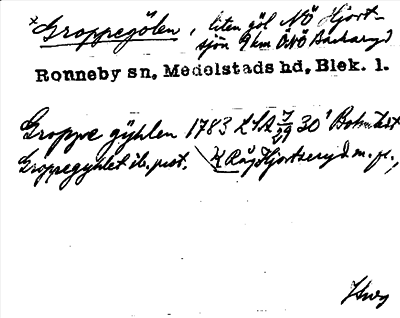 *Groppegölen, liten göl NÖ Hjort-
sjön 9 km ÖNÖ Backaryd
Ronneby sn, Medelstads hd, Blek. l.
Groppe gyhlen 1783 LSA 30
Groppegyhlet ib. prot. RågShjortseryd m. fl.,